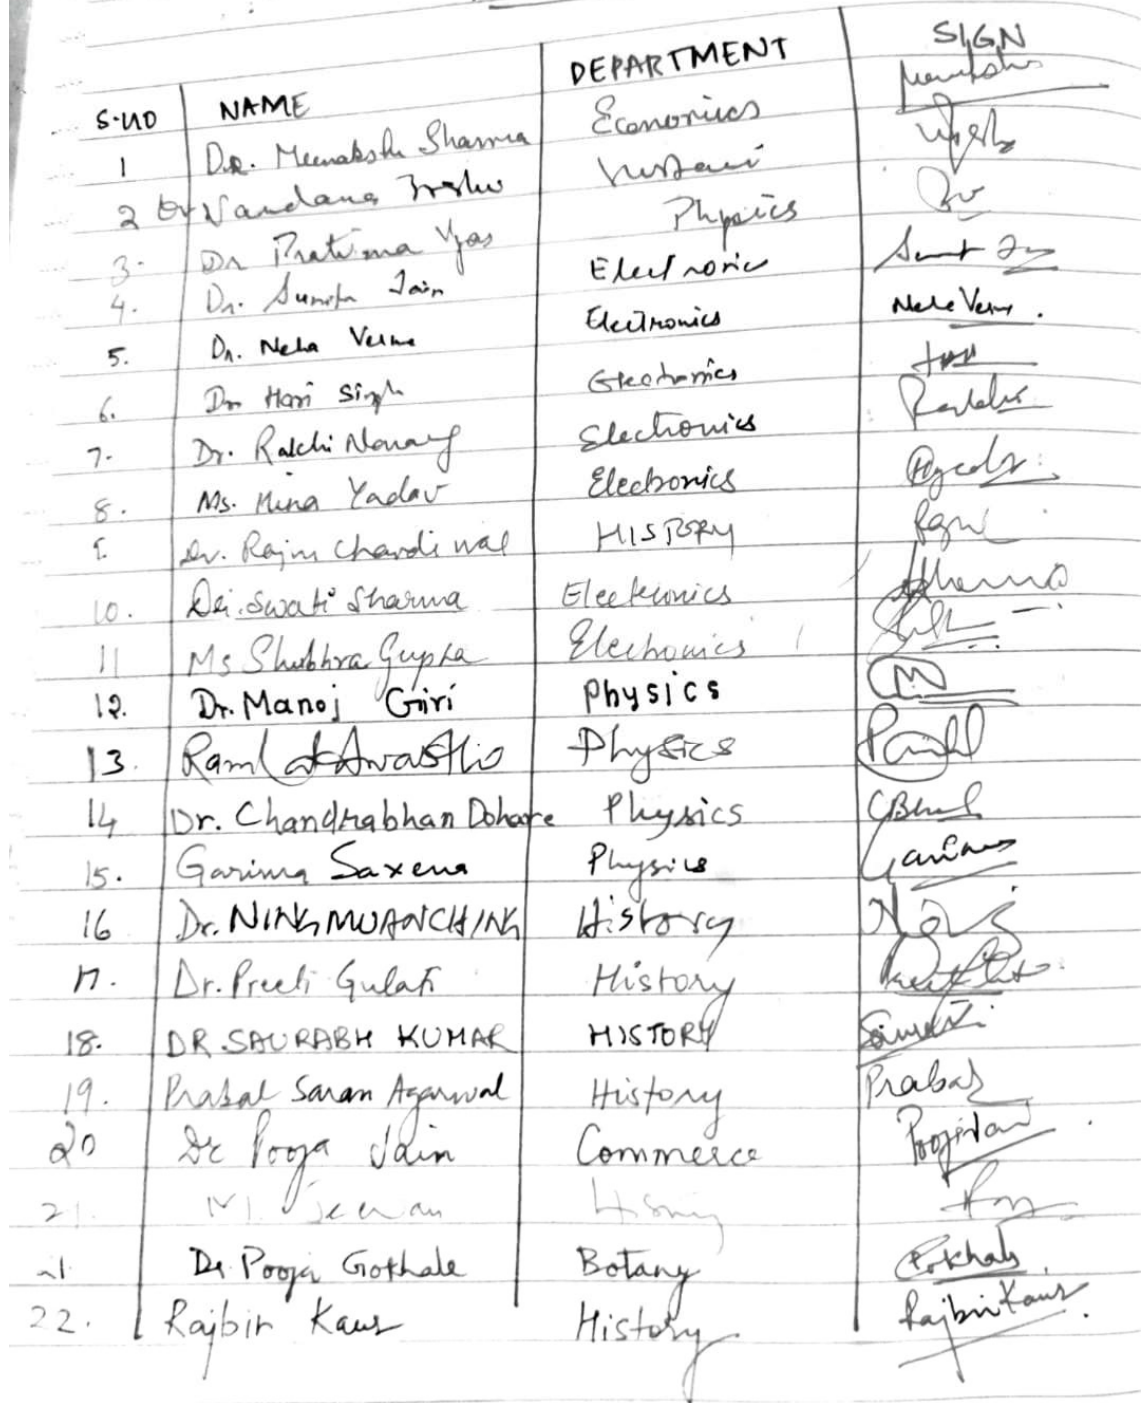 S.NO NAME DEPARTMENT SIGN
1 Dr. Meenakshi Sharma Economics
2 Dr Vandana
3. Dr Pratima Vyas Physics
4. Dr. Sunita Jain Electronic
5. Dr. Neha Verma Electronics Neha Verma.
6. Dr Hari Singh Electronics
7. Dr. Rakhi Narang Electronics
8. Ms. Hina Yadav Electronics
9. Dr. Rajni Chandiwal HISTORY
10. Dr. Swati Sharma Electronics
11 Ms Shubhra Gupta Electronics
12. Dr. Manoj Giri Physics
13. Physics
14 Dr. Chandrabhan Dohare Physics
15. Garima Saxena Physics Garima
16 Dr. NINGMUANCHING History
17. Dr. Preeti Gulati History
18. DR. SAURABH KUMAR HISTORY
19. Prabal Saran Agarwal History Prabal
20 Dr Pooja Jain Commerce Pooja Jain
21. M. Jeewan
21 Dr Pooja Gokhale Botany Gokhale
22. Rajbir Kaur History Rajbir Kaur